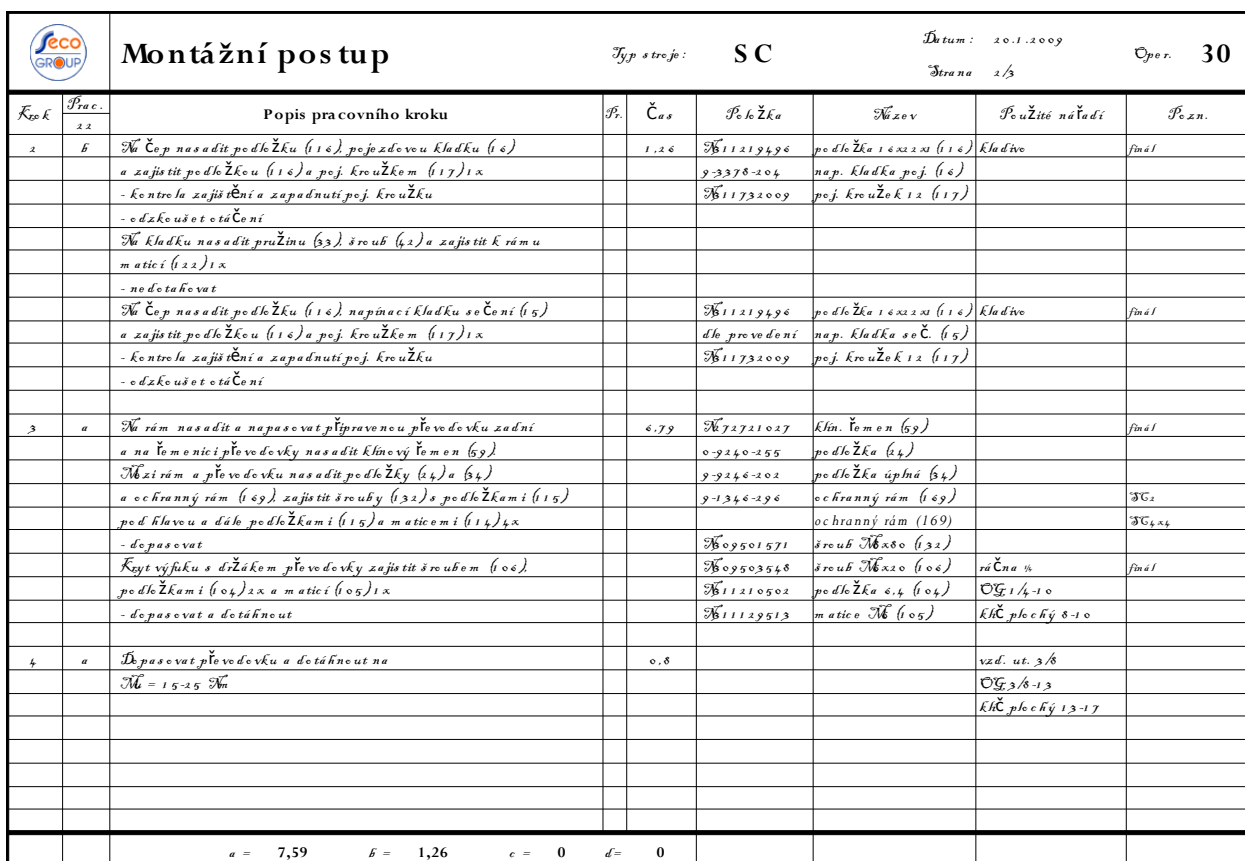 Seco GROUP Montážní postup Typ stroje: SC Datum: 20.1.2009 Oper. 30
Strana 2/3
Krok Prac. 22 Popis pracovního kroku Pr. Čas Položka Název Použité nářadí Pozn.
2 b Na Čep nasadit podložku (116), pojezdovou kladku (16) 1,26 N311219496 podložka 16x22x1 (116) kladivo finál
a zajistit podložkou (116) a poj. kroužkem (117) 1x 9-3378-204 nap. kladka poj. (16)
- kontrola zajištění a zapadnutí poj. kroužku N311732009 poj. kroužek 12 (117)
- odzkoušet otáčení
Na kladku nasadit pružinu (33), šroub (42) a zajistit k rámu
maticí (122) 1x
- nedotahovat
Na Čep nasadit podložku (116), napínací kladku sečení (15) N311219496 podložka 16x22x1 (116) kladivo finál
a zajistit podložkou (116) a poj. kroužkem (117) 1x dle provedení nap. kladka seč. (15)
- kontrola zajištění a zapadnutí poj. kroužku N311732009 poj. kroužek 12 (117)
- odzkoušet otáčení
3 a Na rám nasadit a napasovat připravenou převodovku zadní 6,79 N272721027 klín. řemen (59) finál
a na řemenici převodovky nasadit klínový řemen (59). 0-9240-255 podložka (24)
Mezi rám a převodovku nasadit podložky (24) a (34) 9-9246-202 podložka úplná (34)
a ochranný rám (169), zajistit šrouby (132) s podložkami (115) 9-1346-296 ochranný rám (169) SC2
pod hlavou a dále podložkami (115) a maticemi (114) 4x ochranný rám (169) SC4x4
- dopasovat N309501571 šroub M8x80 (132)
Kryt výfuku s držákem převodovky zajistit šroubem (106), N309503548 šroub M6x20 (106) ráčna ¼ finál
podložkami (104) 2x a maticí (105) 1x N311210502 podložka 6,4 (104) OG 1/4-10
- dopasovat a dotáhnout N311129513 matice M6 (105) klíč plochý 8-10
4 a Dopasovat převodovku a dotáhnout na 0,8 vzd. ut. 3/8
Mu = 15-25 Nm OG 3/8-13
klíč plochý 13-17
a = 7,59 b = 1,26 c = 0 d= 0